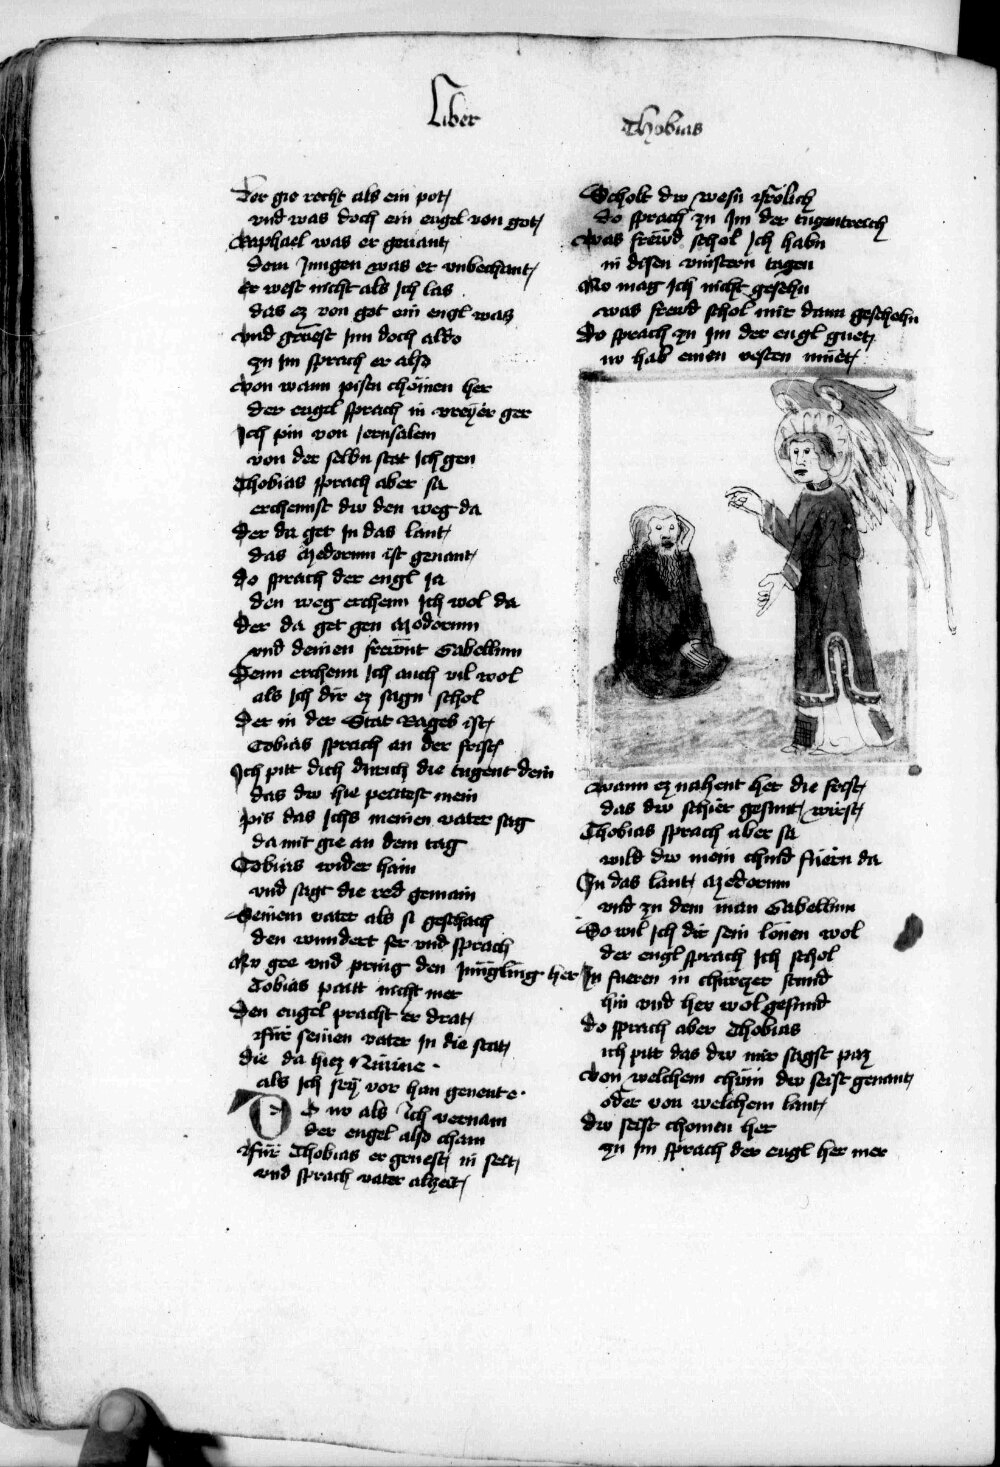 Liber
Thobias
Der gie recht als ein pot
vnd was doch ein engel von got
Raphael was er genant
dem Jungen was er vnbechant
Er west nicht als Jch las
das ez von got ein engl was
vnd gruest Jnn doch aldo
zu Jm sprach er also
von wann pistu chomen her
der engel sprach in vreyer ger
Jch pin von Jerusalem
von der selbn stat Jch gen
Thobias sprach aber sa
erchennst dw den weg da
der da get Jn das lant
das Medorum ist genant
do sprach der engl Ja
den weg erchenn Jch wol da
der da get gen Medorum
vnd deinen frewnt Gabellum
Denn erchenn Jch auch vil wol
als Jch dir ez sagn schol
Der in der Stat Rages ist
Tobias sprach an der frist
Jch pitt dich durich die tugent dein
das dw hie peittest mein
pis das Jchs meinen vater sag
da mit gie an dem tag
Tobias wider haim
vnd sagt die red gemain
Seinem vater als si geschach
den wundert ser vnd sprach
Nv gee vnd pring den Jungling her
Tobias paitt nicht mer
Den engel pracht er drat
für seinen vater Jn die stat
die da hiez Niniue
als Jch sey vor han genent e
Do nw als Jch vernam
der engel also cham
für Thobias er gruest in selt
vnd sprach vater alzeit
Scholt dw wesn frölich
do sprach zu Jm der tugentreich
was frewd schol Jch habn
in disen vinstern tagen
Nv mag Jch nicht gesehn
was frewd schol mir dann geschehn
Do sprach zu Jm der engl guet
nv hab einen vesten muet
wann ez nahent her die frist
das dw schier gesunt wirst
Thobias sprach aber sa
wild dw mein chind füern da
Jn das lant Medorum
vnd zu dem man Gabellum
So wil Jch dir sein lonen wol
der engl sprach Jch schol
Jn fueren in churczer stund
hin vnd her wol gesund
do sprach aber Thobias
ich pitt das dw mir sagst paz
von welchem chünn dw seist genant
oder von welchem lant
dw seist chomen her
zu Jm sprach der engl her mer